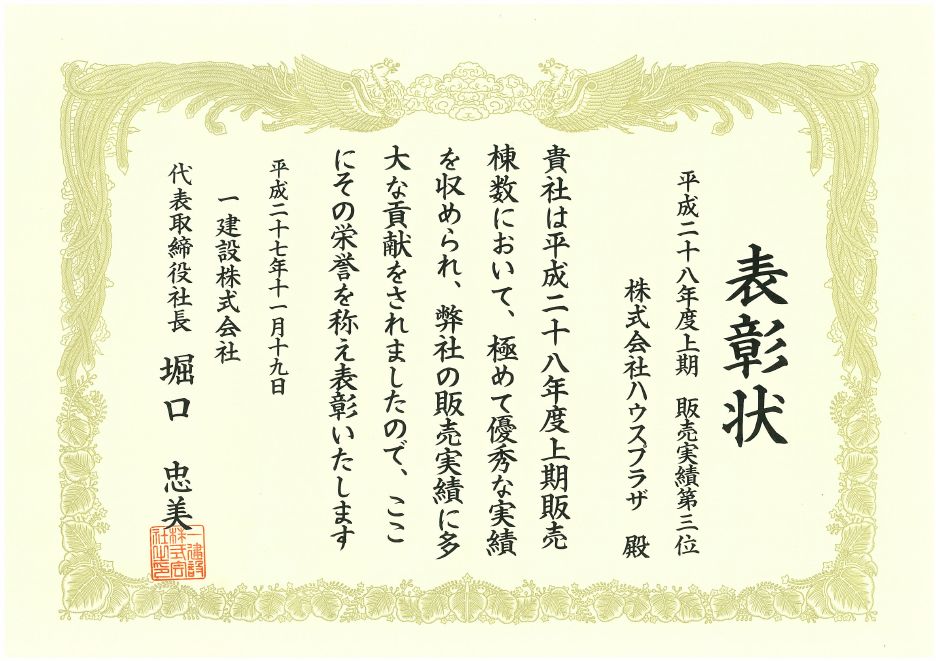 表彰状
平成二十八年度上期 販売実績第三位
株式会社ハウスプラザ 殿
貴社は平成二十八年度上期販売
棟数において、極めて優秀な実績
を収められ、弊社の販売実績に多
大な貢献をされましたので、ここ
にその栄誉を称え表彰いたします
平成二十七年十一月十九日
一建設株式会社
代表取締役社長 堀口 忠美
一建設
株式会
社之印